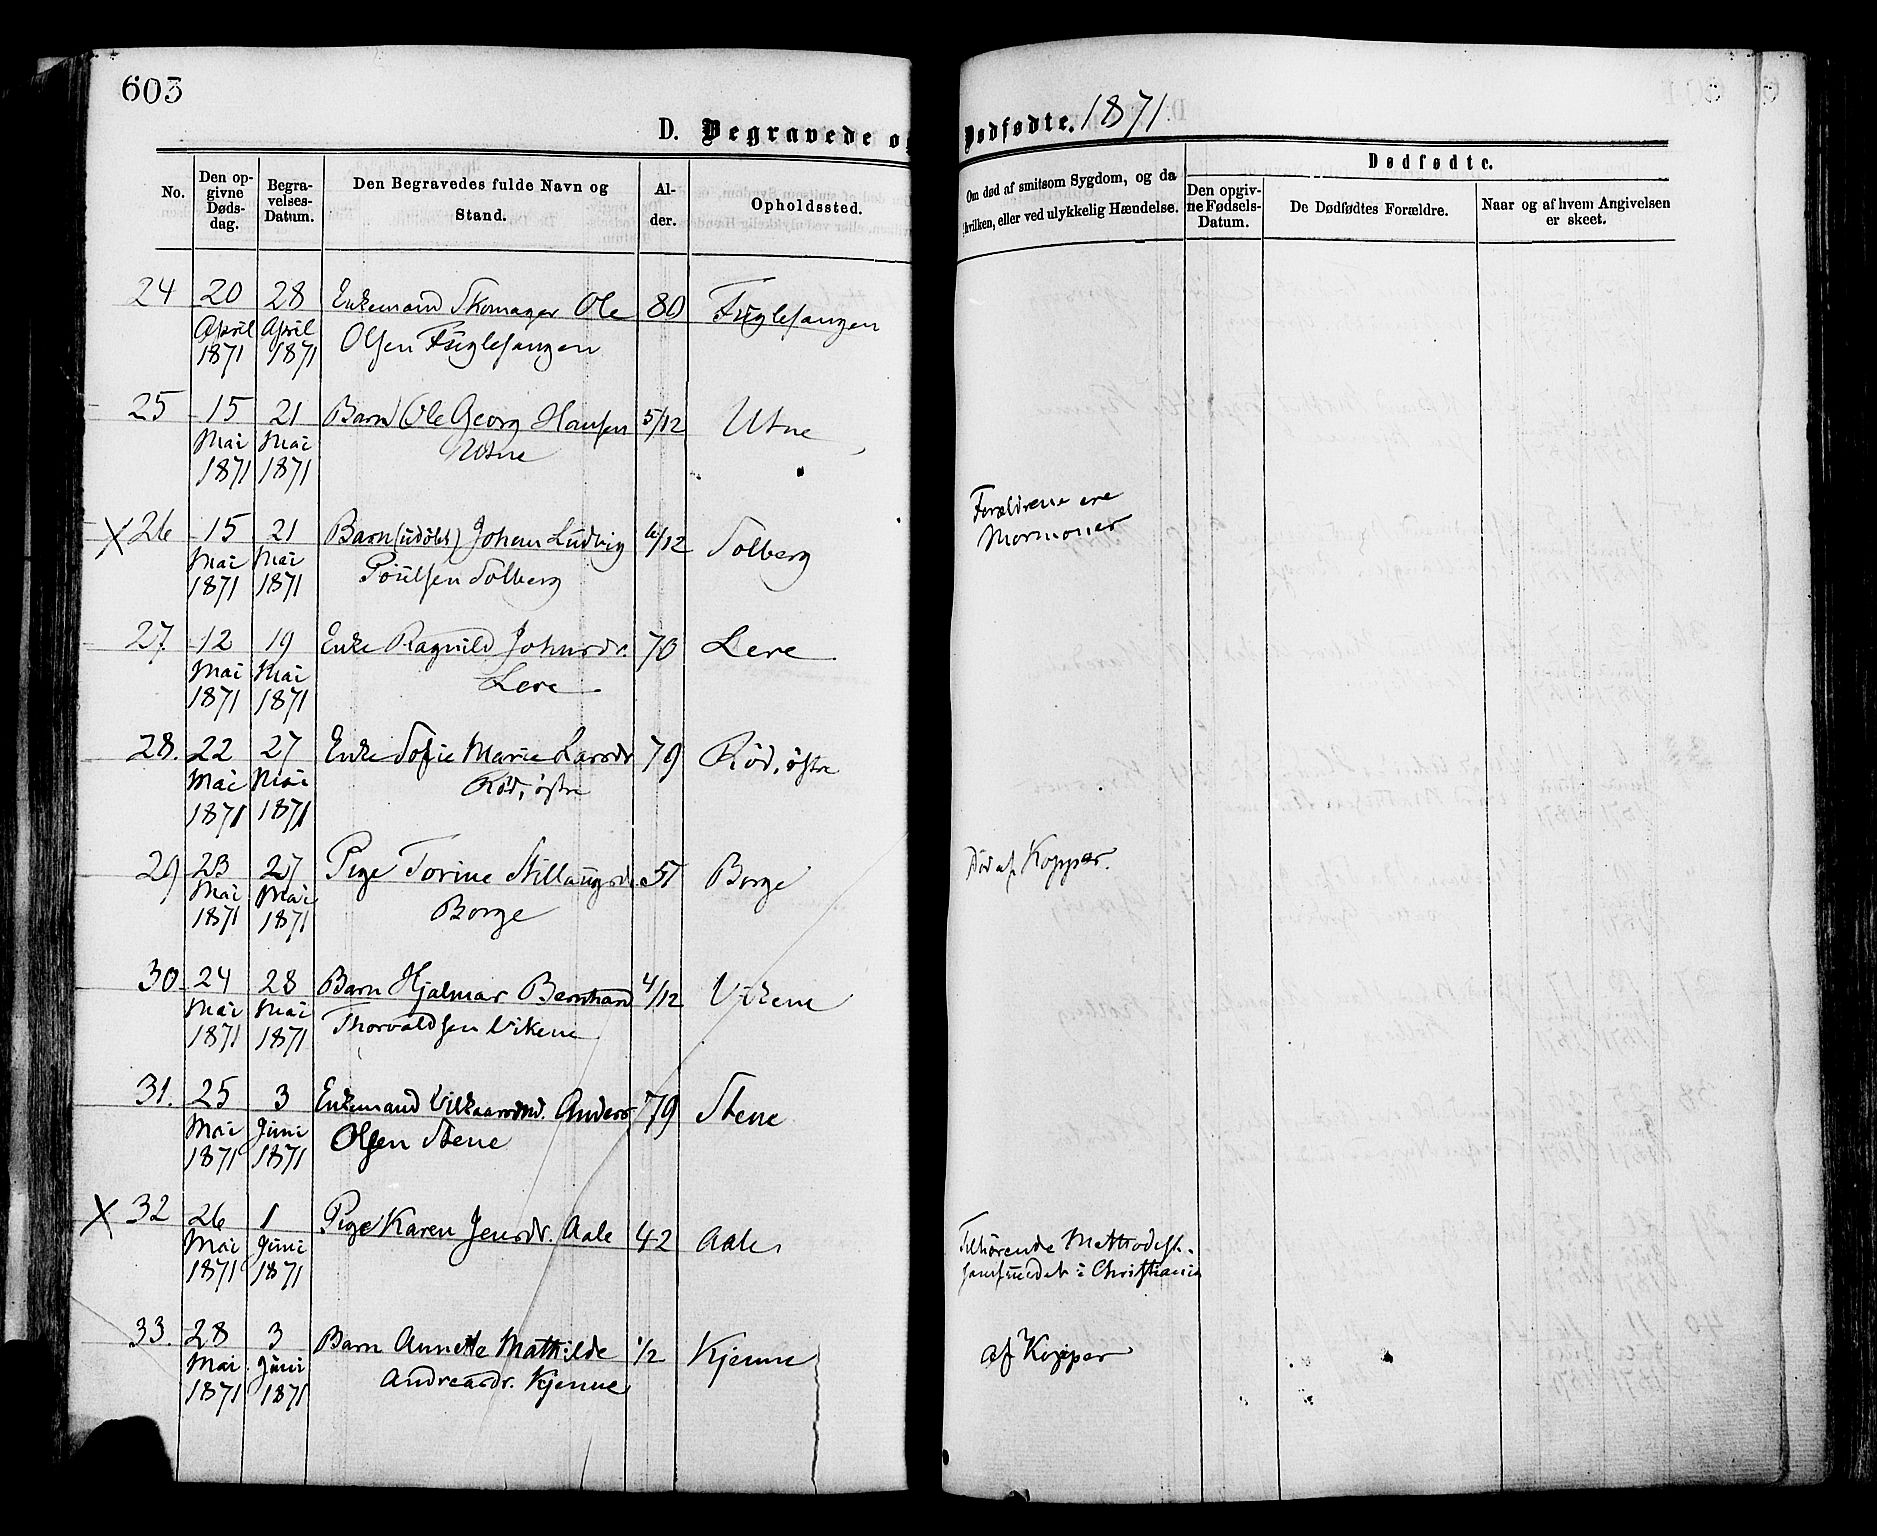 603
D. Begravede og Dødfødte. 1871.
No.
Den opgivne Dødsdag.
Begravelses-Datum.
Den Begravedes fulde Navn og Stand.
Alder.
Opholdssted.
Om død af smitsom Sygdom, og da hvilken, eller ved ulykkelig Hændelse.
Dødfødte.
Den opgivne Fødsels-Datum.
De Dødfødtes Forældre.
Naar og af hvem Angivelsen er skeet.
24 20 28 Enkemand Skomager Ole 80 Fuglesangen
April April Olsen Fuglesangen
1871 1871
25 15 21 Barn Ole Georg Hansen 5/12 Utne
Mai Mai Utne
1871 1871
X 26 15 21 Barn (udøbt) Johan Ludvig /12 Solberg Forældrene ere
Mai Mai Poulsen Solberg Mormoner
1871 1871
27. 12 19 Enke Ragnild Johnsdr. 70 Lere
Mai Mai Lere
1871 1871
28. 22 27 Enke Sofie Marie Larsdr 79 Rød, østre
Mai Mai Rød, østre
1871 1871
29 23 27 Pige Torine Stillaugsdr 51 Borge Død af Kopper.
Mai Mai Borge
1871 1871
30. 24 28 Barn Hjalmar Bernhard 4/12 Vikene
Mai Mai Thorvaldsen Vikene
1871 1871
31. 25 3 Enkemand Vilkaarsmd. Anders 79 Stene
Mai Juni Olsen Stene
1871 1871
X 32 26 1 Pige Karen Jensdr. Aale 42 Aale Tilhørende Methodist-
Mai Juni samfundet i Christiania
1871 1871
33. 28 3 Barn Annette Mathilde 1/2 Kjenne af Kopper
Mai Juni Andreasdr. Kjenne
1871 1871